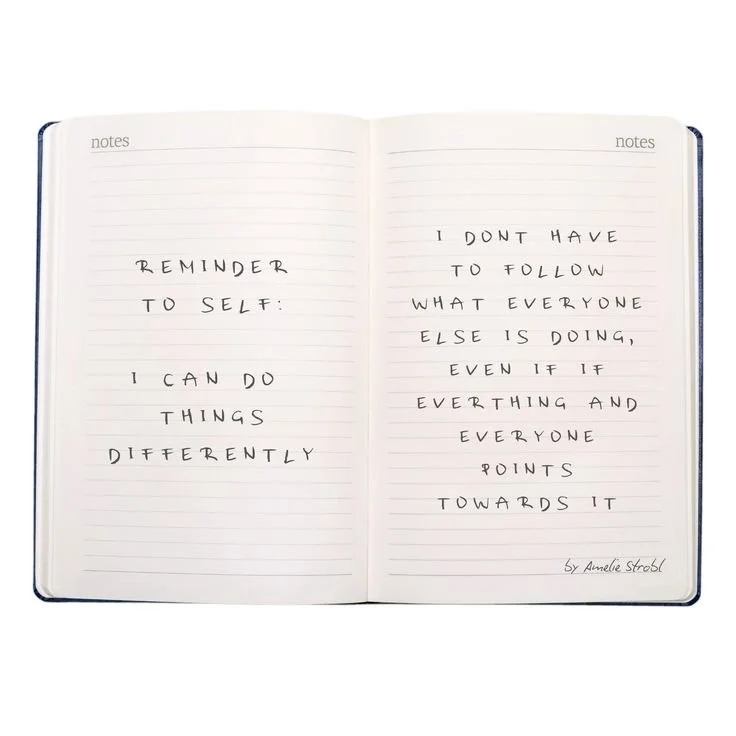 notes
REMINDER
TO SELF:
I CAN DO
THINGS
DIFFERENTLY
notes
I DONT HAVE
TO FOLLOW
WHAT EVERYONE
ELSE IS DOING,
EVEN IF IF
EVERTHING AND
EVERYONE
POINTS
TOWARDS IT
by Amelie Strobl